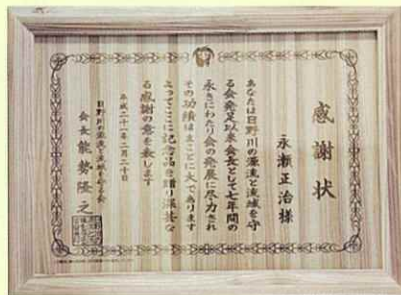 感謝状
永瀬正治様
あなたは日野川の源流と流域を守
る会発足以来会長として七年間の
永きにわたり会の発展に尽力され
その功績はまことに大であります
よってここに記念品を贈り深甚な
る感謝の意を表します
平成二十一年二月二十日
日野川の源流と流域を守る会
会長 能勢隆之